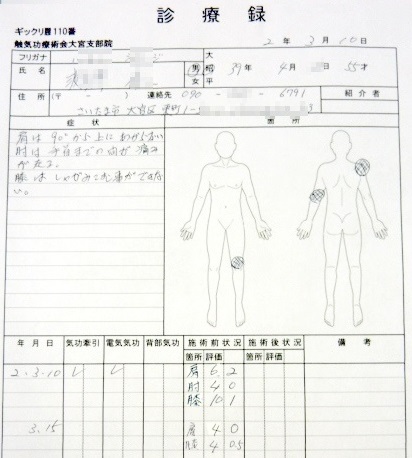 診療録
ギックリ腰110番
触気功療術会大宮支部院
2 年 3 月 10 日
フリガナ
氏名
男 女
大 昭 平
39年 4月 日 55才
住所 (〒 - ) 連絡先 090 - - 6791
紹介者
さいたま市 大宮区 1-
症状 箇所
肩は90°から上に あがらない
肘は手首までの 痛み
が走る。
膝は しゃがみこむ事ができな
い。
年月日 気功牽引 電気気功 背部気功 施術前状況 施術後状況 備考
箇所 評価 箇所 評価
2.3.10 レ レ 肩 6 2
肘 4 0
膝 10 1
3.15 肩 4 0
膝 4 0.5